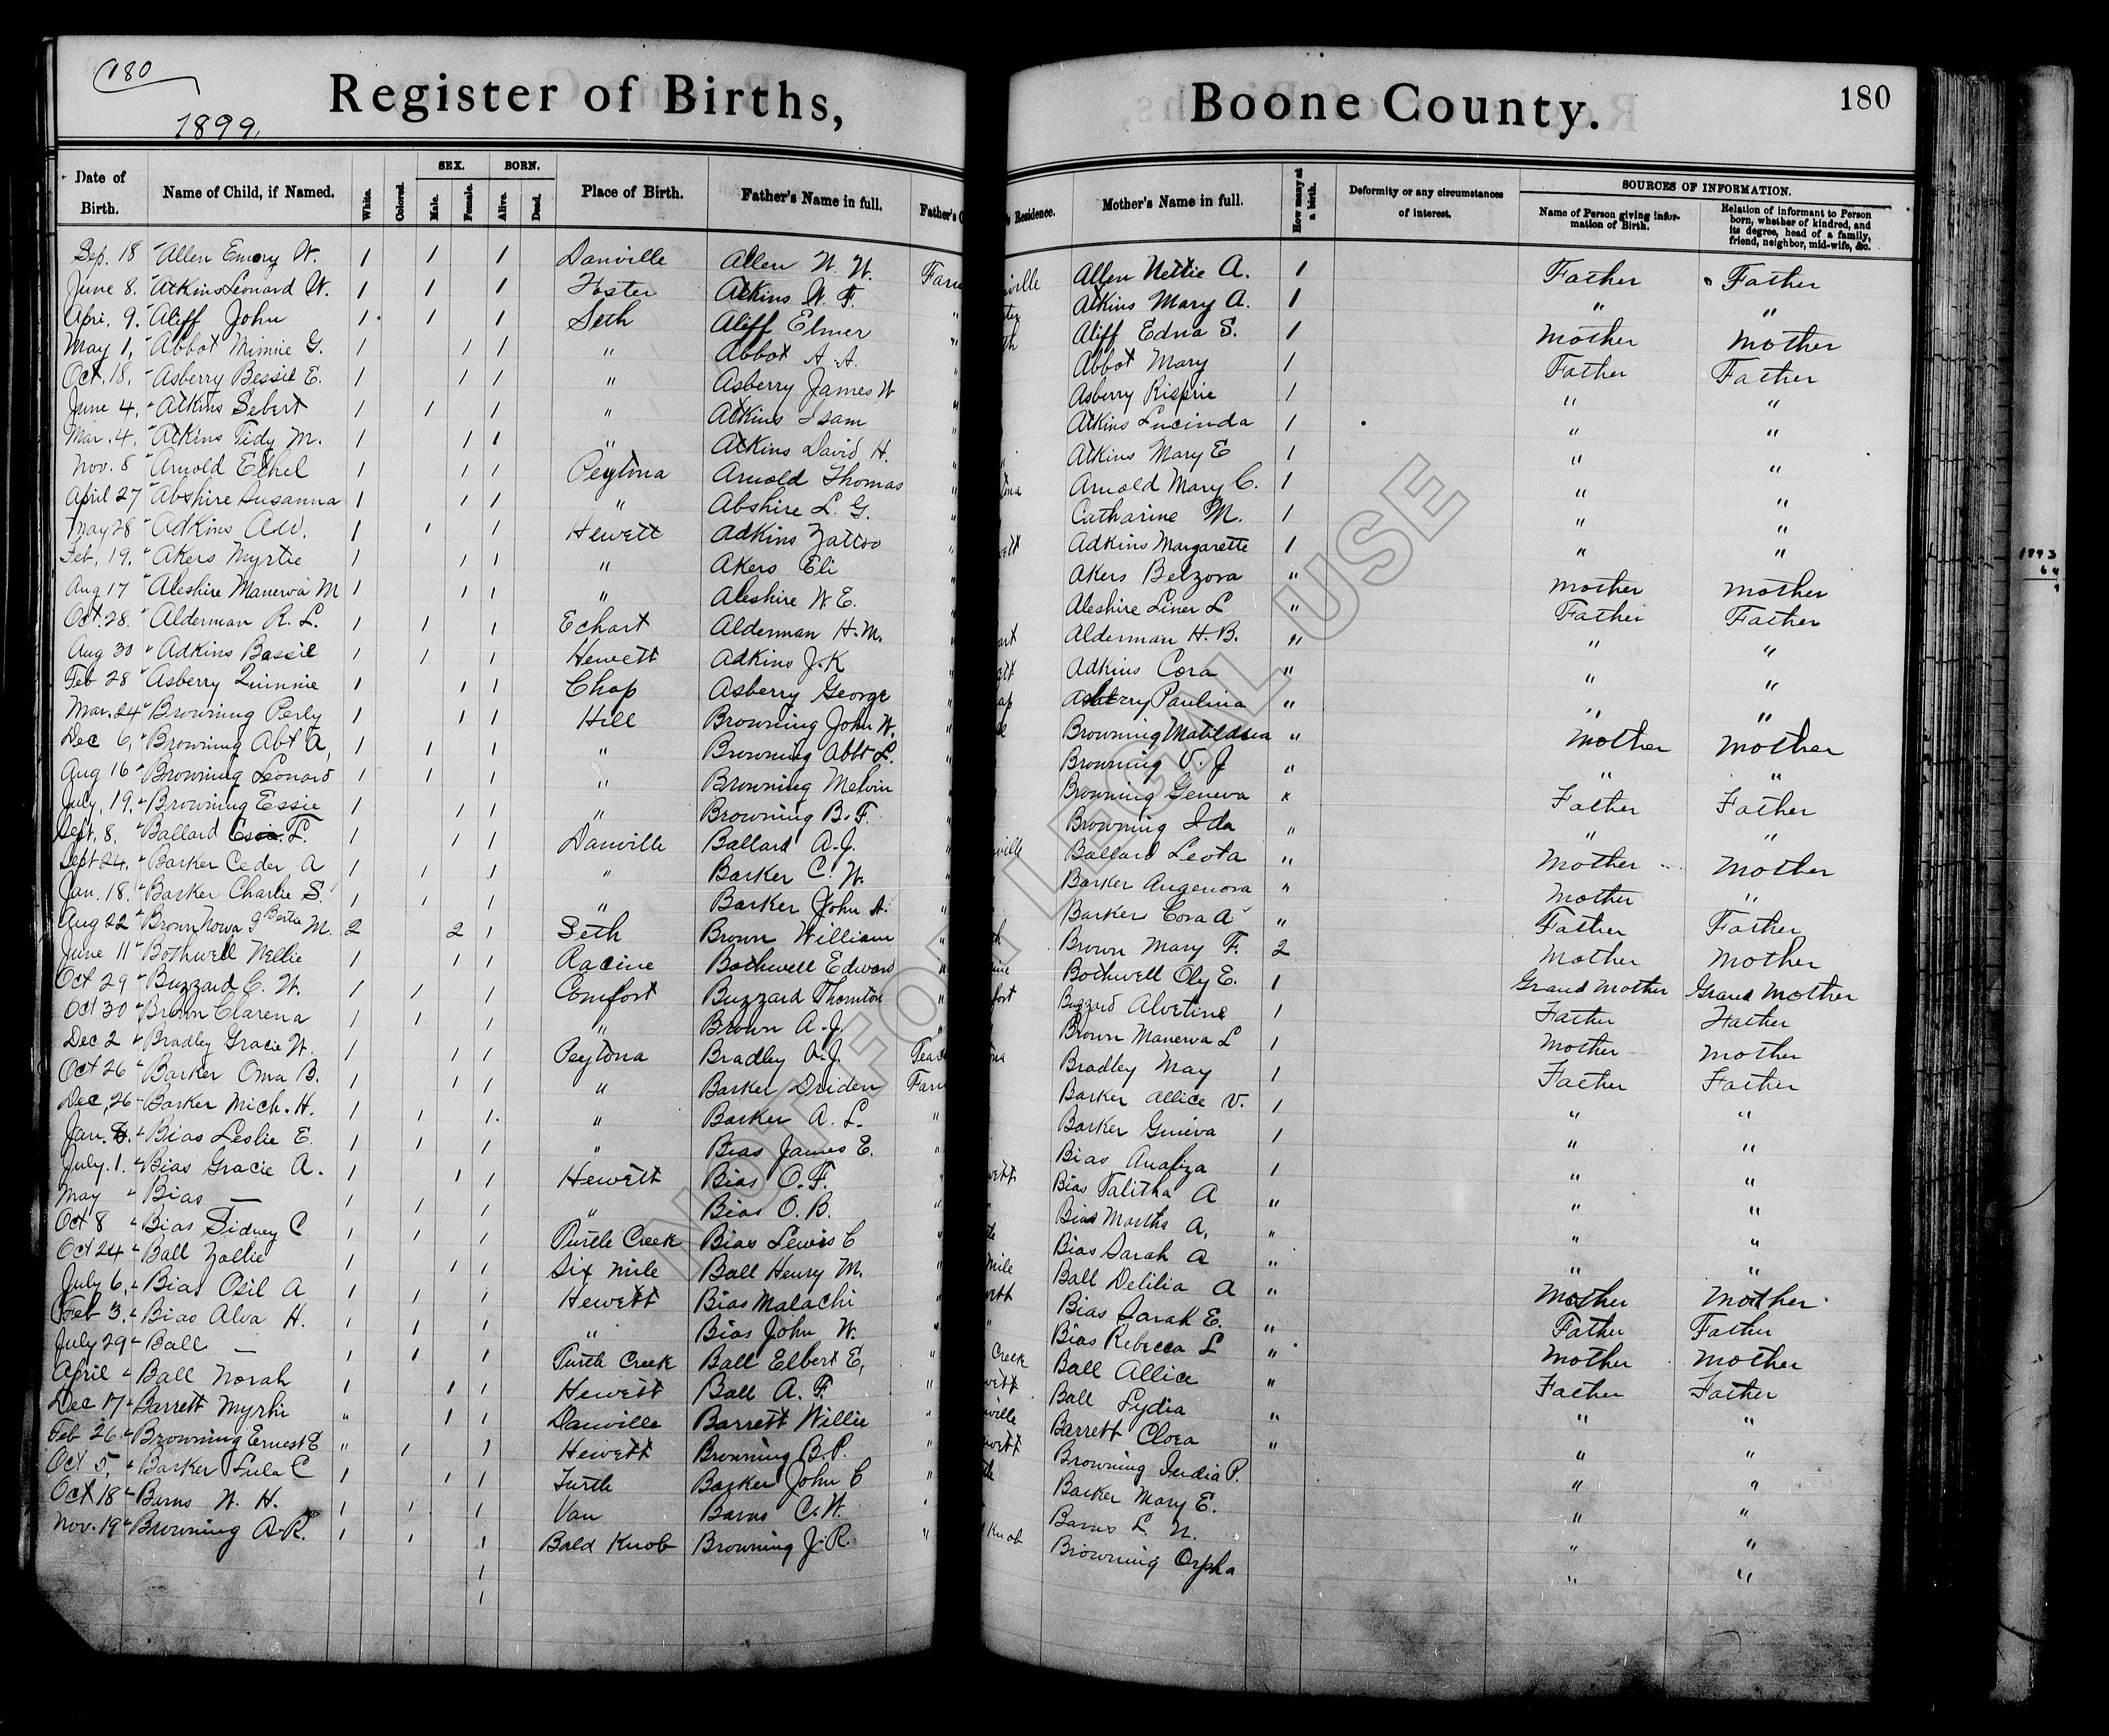 180
1899
Register of Births, Boone County. 180
Date of Birth. Name of Child, if Named. White. Colored. SEX. Male. Female. BORN. Alive. Dead. Place of Birth. Father's Name in full. Father's O 's Residence. Mother's Name in full. How many at a birth. Deformity or any circumstances of interest. SOURCES OF INFORMATION. Name of Person giving information of Birth. Relation of informant to Person born, whether of kindred, and its degree, head of a family, friend, neighbor, mid-wife, &c.
Sep. 18 Allen Emory W. 1 1 1 Danville Allen W. W. Farm ville Allen Nettie A. 1 Father Father
June 8. Atkins Leonard W. 1 1 1 Foster Atkins W. F. " ter Atkins Mary A. 1 " "
Apri. 9. Aliff John 1 1 1 Seth Aliff Elmer " th Aliff Edna S. 1 Mother Mother
May 1, Abbot Minnie G. 1 1 1 " Abbot A. A. " Abbot Mary 1 Father Father
Oct. 18, Asberry Bessie E. 1 1 1 " Asberry James W " Asberry Rispie 1 " "
June 4, Atkins Sebert 1 1 1 " Atkins Isam " Atkins Lucinda 1 " "
Mar. 4, Atkins Tidy M. 1 1 1 " Atkins David H. " Atkins Mary E 1 " "
Nov. 8 Arnold Ethel 1 1 1 Peytona Arnold Thomas " tona Arnold Mary C. 1 " "
April 27 Abshire Susanna 1 1 1 " Abshire L. G. " Catharine M. 1 " "
May 28 Adkins A.W. 1 1 1 Hewett Adkins Zattoo " ett Adkins Margarette 1 " "
Feb, 19. Akers Myrtie 1 1 1 " Akers Eli " Akers Belzora " Mother Mother
Aug 17 Aleshire Manerva M 1 1 1 " Aleshire W. E. " Aleshire Liner L " Father Father
Oct. 28. Alderman R. L. 1 1 1 Echart Alderman H. M. " art Alderman H. B. " " "
Aug 30 Adkins Bassil 1 1 1 Hewett Adkins J. K " ett Adkins Cora " " "
Feb 28 Asberry Quinnie 1 1 1 Chap Asberry George " ap Asberry Paulina " " "
Mar. 24 Browning Perly 1 1 1 Hill Browning John W. " Browning Matildaia " Mother Mother
Dec 6, Browning Abt A, 1 1 1 " Browning Abbt L. " Browning V. J " " "
Aug 16 Browning Leonard 1 1 1 " Browning Melvin " Browning Geneva " Father Father
July, 19. Browning Essie 1 1 1 " Browning B. F. " Browning Ida " " "
Sept. 8. Ballard F. 1 1 1 Danville Ballard A. J. " ville Ballard Leota " Mother Mother
Sept 24. Barker Ceder A 1 1 1 " Barker C. W. " Barker Angenora " Mother "
Jan. 18. Barker Charlie S. 1 1 1 " Barker John A. " Barker Cora A " Father Father
Aug 22 Brown Nowa J Bertie M. 2 2 1 Seth Brown William " th Brown Mary F. 2 Mother Mother
June 11 Bothwell Nellie 1 1 1 Racine Bothwell Edward " ine Bothwell Oly E. 1 Grand Mother Grand Mother
Oct 29 Buzzard C. W. 1 1 1 Comfort Buzzard Thornton " fort Buzzard Alvetine 1 Father Father
Oct 30 Brown Clarena 1 1 1 " Brown A. J. " Brown Manerva L 1 Mother Mother
Dec 2 Bradley Gracie W. 1 1 1 Peytona Bradley A. J. Teach ona Bradley May 1 Father Father
Oct 26 Barker Oma B. 1 1 1 " Barker Driden Farm Barker Allice V. 1 " "
Dec, 26 Barker Mich. H. 1 1 1. " Barker A. L. " Barker Geneva 1 " "
Jan. 8. Bias Leslie E. 1 1 1 " Bias James E. " Bias Analiza 1 " "
July. 1. Bias Gracie A. 1 1 1 Hewett Bias O. F. " wett Bias Talitha A " " "
May Bias — 1 1 1 " Bias O. B. " Bias Martha A, " " "
Oct 8 Bias Sidney C. 1 1 1 Turtle Creek Bias Lewis C " tle Bias Sarah A " " "
Oct 24 Ball Zollie 1 1 1 Six Mile Ball Henry M. " Mile Ball Delilia A " Mother Mother
July 6, Bias Osil A 1 1 1 Hewett Bias Malachi " ett Bias Sarah E. " Father Father
Feb 3. Bias Alva H. 1 1 1 " Bias John W. " Bias Rebecca L " Mother Mother
July 29 Ball — 1 1 1 Turtle Creek Ball Elbert E, " Creek Ball Allice " Father Father
April Ball Norah 1 1 1 Hewett Ball A. F. " wett Ball Lydia " " "
Dec 17 Barrett Myrtie " 1 1 Danville Barrett Willie " ville Barrett Cloea " " "
Feb 26. Browning Ernest E " 1 1 Hewett Browning B. P. " wett Browning India P. " "
Oct 5, Barker Lula C 1 1 1 Turtle Barker John C " tle Barker Mary E. " "
Oct 18 Barns W. H. 1 1 1 Van Barns C. W. ' Barns L. N. " "
Nov. 19 Browning A. R. 1 1 1 Bald Knob Browning J. R. " Knob Browning Orpha " "
1
1
NOT FOR LEGAL USE